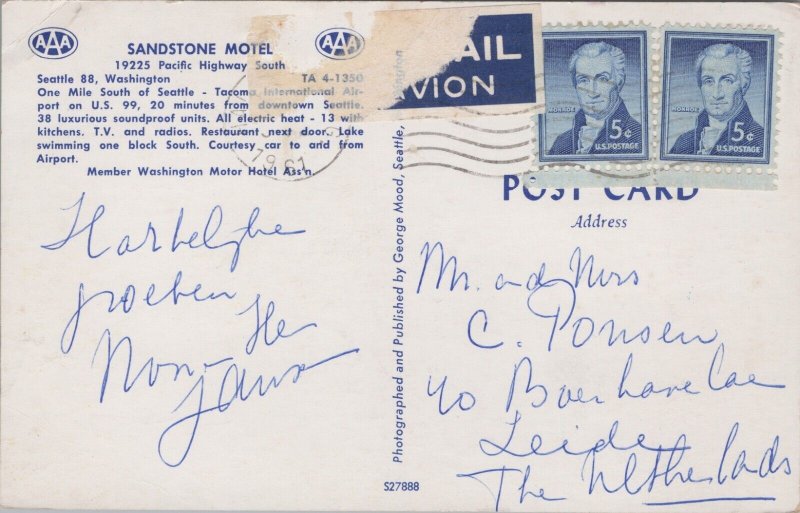 AAA
SANDSTONE MOTEL
AAA
19225 Pacific Highway South
Seattle 88, Washington TA 4-1350
One Mile South of Seattle - Tacoma International Air-
port on U.S. 99, 20 minutes from downtown Seattle.
38 luxurious soundproof units. All electric heat - 13 with
kitchens. T.V. and radios. Restaurant next door. Lake
swimming one block South. Courtesy car to and from
Airport.
Member Washington Motor Hotel Ass'n.
1961
AIL
AVION
MONROE
5¢
U.S. POSTAGE
MONROE
5¢
U.S. POSTAGE
POST CARD
Address
Photographed and Published by George Mood, Seattle,
Hartelijke
groeten
Mr. and Mrs
C. Ponsen
40 Boerhavelae
Leide
The Netherlands
S27888